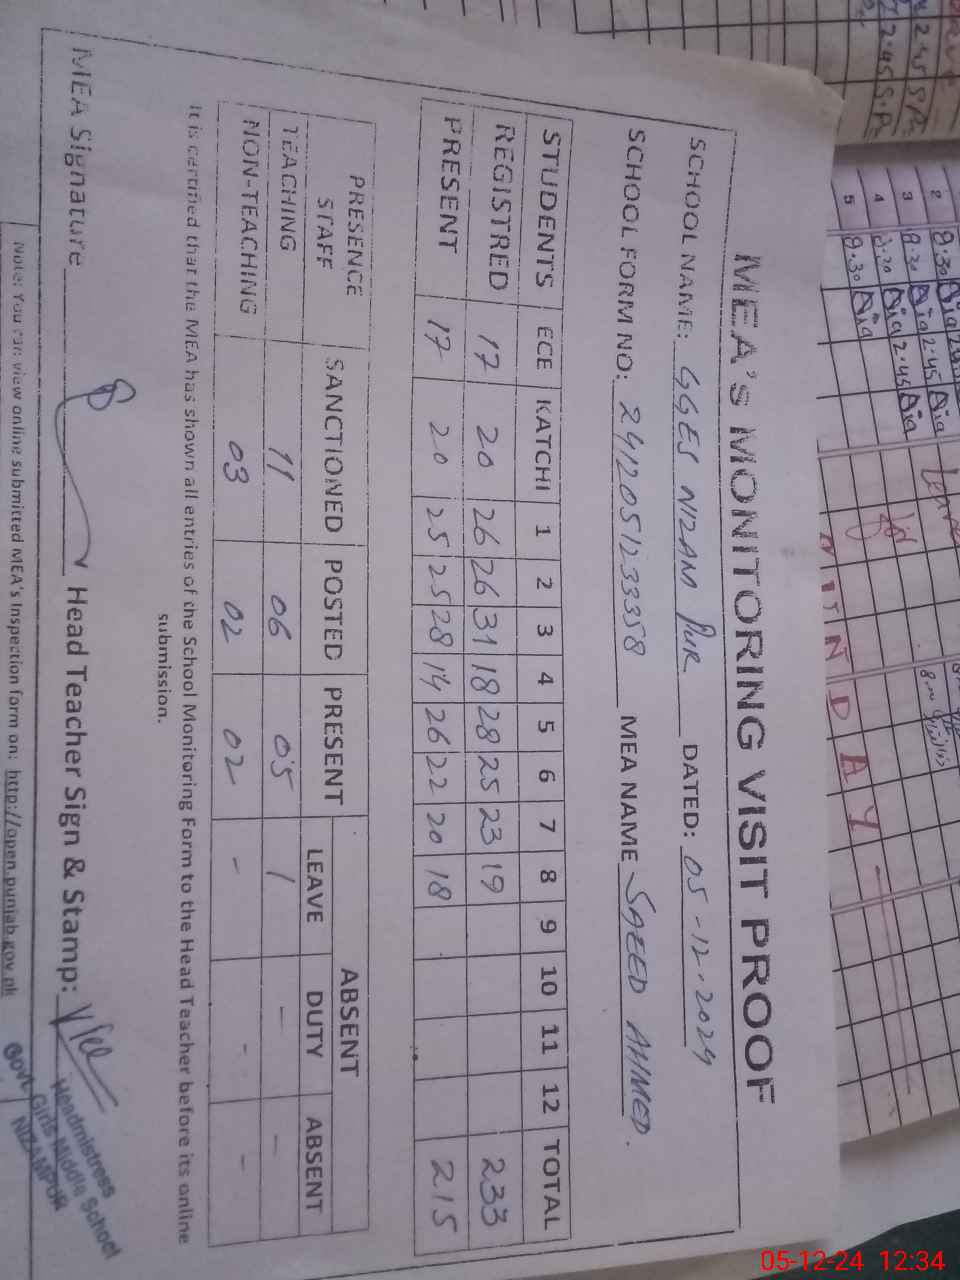 MEA'S MONITORING VISIT PROOF
SCHOOL NAME: GGES NIZAM PUR DATED: 05-12-2024
SCHOOL FORM NO: 2412051233358 MEA NAME SAEED AHMED.
STUDENTS ECE KATCHI 1 2 3 4 5 6 7 8 9 10 11 12 TOTAL
REGISTRED 17 20 26 26 31 18 28 25 23 19 233
PRESENT 17 20 25 25 28 14 26 22 20 18 215
PRESENCE STAFF SANCTIONED POSTED PRESENT ABSENT
LEAVE DUTY ABSENT
TEACHING 11 06 05 1 - -
NON-TEACHING 03 02 02 - - -
It is certified that the MEA has shown all entries of the School Monitoring Form to the Head Teacher before its online
submission.
MEA Signature Head Teacher Sign & Stamp:
Headmistress
Govt. Girls Middle School
NIZAMPUR
Note: You can view online submitted MEA's Inspection form on: http://open.punjab.gov.pk
2 8.30
3 8.30 Aia 2.45 Aia
4 8.20 Aia 2.45 Aia
5 8.30 Aia
Leave
05-12-24 12:34